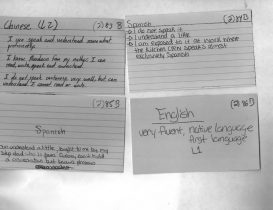 Chinese (L2) (2) 83 B
I can speak and understand somewhat
proficiently.
I know Mandarin from my mother; I can
read, write, speak and understand.
I do not speak Cantonese very well, but can
understand. I cannot read or write.
Spanish (2) 84 D
I do not speak it
I understand a little
I am exposed to it at work where
the kitchen crew speaks almost
exclusively Spanish
(2) 85 B
Spanish
can understand a little, taught to me by my
step dad who is from
a conversation but
English (2) 86 D
very fluent, native language
first language
L1